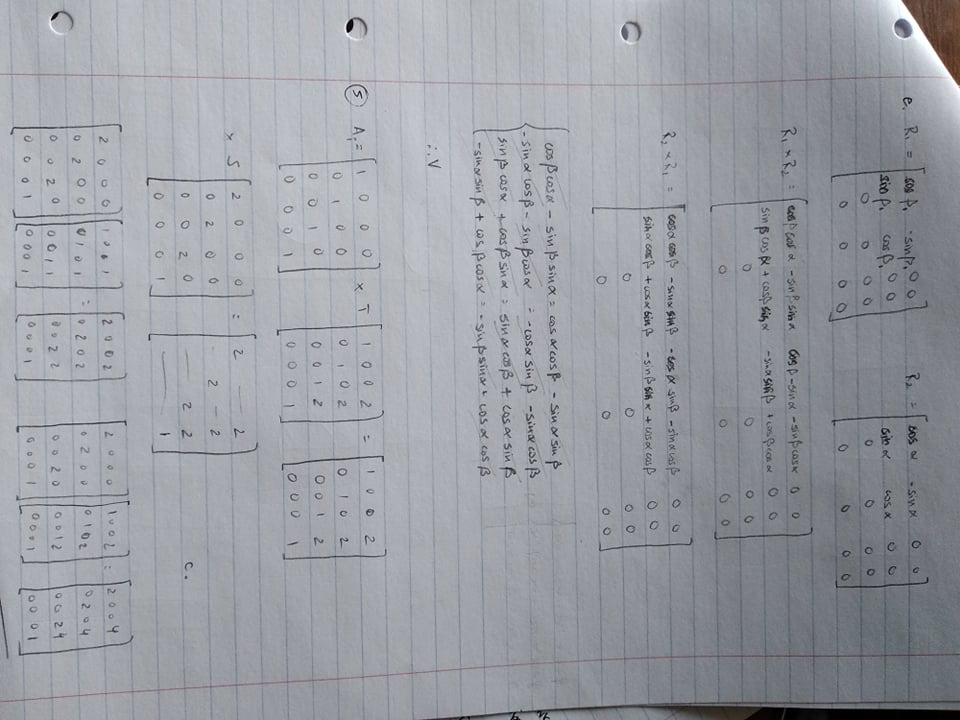 e. R₁ = [cos β₁ -sin β₁ 0 0 R₂ = [cos α -sin α 0 0
sin β₁ cos β₁ 0 0 sin α cos α 0 0
0 0 0 0 0 0 0 0
0 0 0 0] 0 0 0 0]
R₁ × R₂ = [cos β cos α - sin β sin α cos β - sin α - sin β cos α 0 0
sin β cos α + cos β sin α - sin α sin β + cos β cos α 0 0
0 0 0 0
0 0 0 0]
R₂ × R₁ = [cos α cos β - sin α sin β - cos α sin β - sin α cos β 0 0
sin α cos β + cos α sin β - sin β sin α + cos α cos β 0 0
0 0 0 0
0 0 0 0]
{cos β cos α - sin β sin α = cos α cos β - sin α sin β
- sin α cos β - sin β cos α = - cos α sin β - sin α cos β
sin β cos α + cos β sin α = sin α cos β + cos α sin β
- sin α sin β + cos β cos α = - sin β sin α + cos α cos β
∴ V
⑤ A₁ = [1 0 0 0 × T [1 0 0 2 = [1 0 0 2
0 1 0 0 0 1 0 2 0 1 0 2
0 0 1 0 0 0 1 2 0 0 1 2
0 0 0 1] 0 0 0 1] 0 0 0 1]
× S [2 0 0 0 = [2 — 2
0 2 0 0 - 2 - 2
0 0 2 0 — 2 2 c.
0 0 0 1] — 1]
[2 0 0 0 [1 0 0 1 = [2 0 0 2 [2 0 0 0 [1 0 0 2 = [2 0 0 4
0 2 0 0 0 1 0 1 0 2 0 2 0 2 0 0 0 1 0 2 0 2 0 4
0 0 2 0 0 0 1 1 0 0 2 2 0 0 2 0 0 0 1 2 0 0 2 4
0 0 0 1] 0 0 0 1] 0 0 0 1] 0 0 0 1] 0 0 0 1] 0 0 0 1]